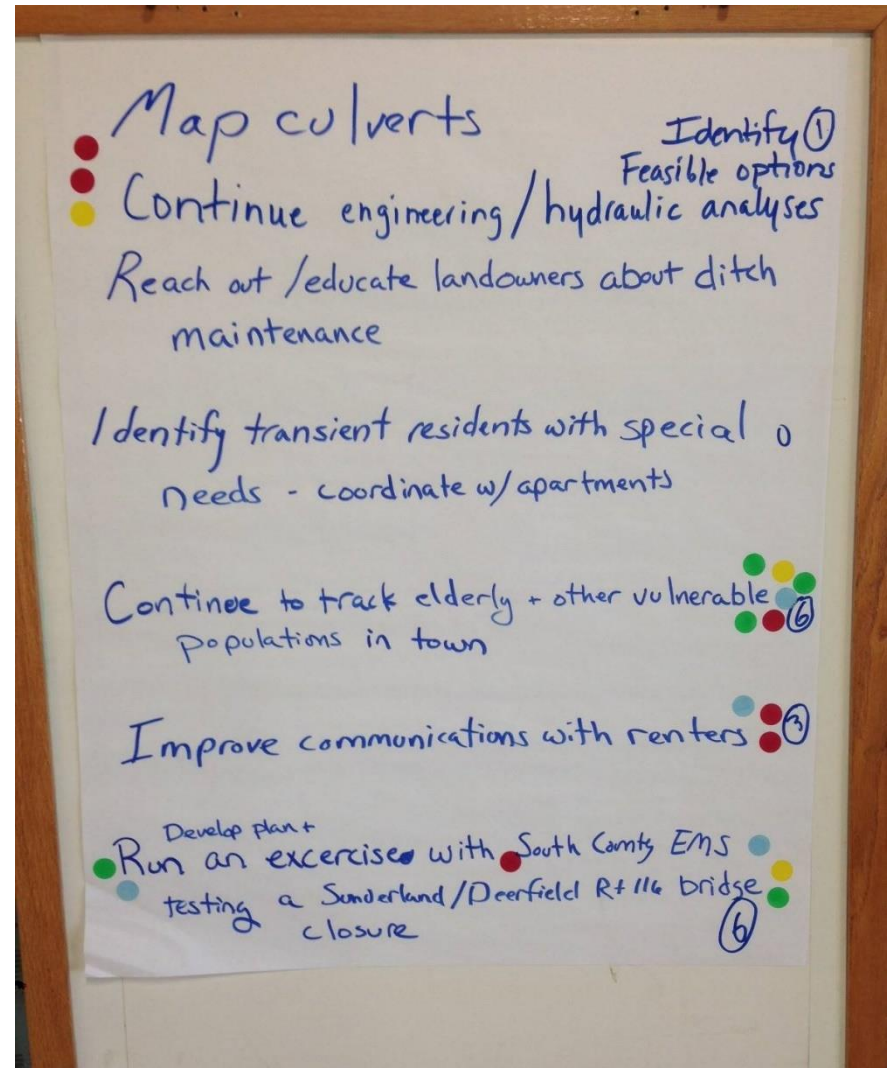 Map culverts
Identify ①
Feasible options
Continue engineering/hydraulic analyses
Reach out/educate landowners about ditch
maintenance
Identify transient residents with special 0
needs - coordinate w/apartments
Continee to track elderly + other vulnerable
populations in town ⑥
Improve communications with renters ③
Develop plan +
Run an excercise with South County EMS
testing a Sunderland/Deerfield Rt 116 bridge
closure ⑥